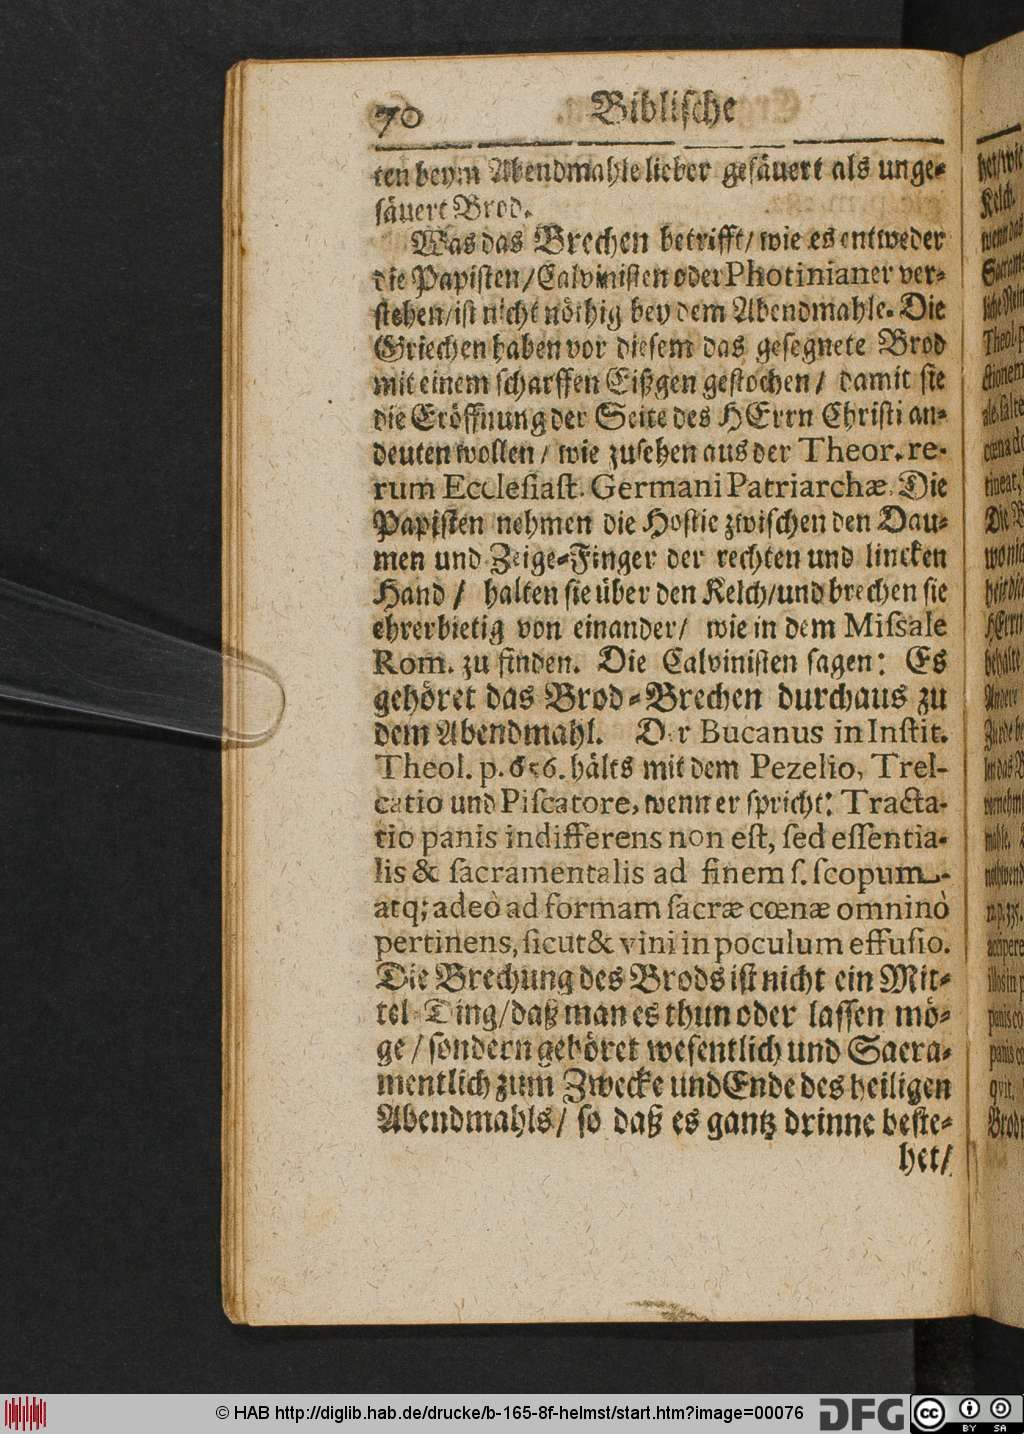 70 Biblische
ten beym Abendmahle lieber gesäuert als unge-
säuert Brod.
Was das Brechen betrifft/ wie es entweder
die Papisten/ Calvinisten oder Photinianer ver-
stehen/ ist nicht nöthig bey dem Abendmahle. Die
Griechen haben vor diesem das gesegnete Brod
mit einem scharffen Eißgen gestochen/ damit sie
die Eröffnung der Seite des HErrn Christi an-
deuten wollen/ wie zusehen aus der Theor. re-
rum Ecclesiast. Germani Patriarchæ. Die
Papisten nehmen die Hostie zwischen den Dau-
men und Zeige-Finger der rechten und lincken
Hand/ halten sie über den Kelch/ und brechen sie
ehrerbietig von einander/ wie in dem Missale
Rom. zu finden. Die Calvinisten sagen: Es
gehöret das Brod-Brechen durchaus zu
dem Abendmahl. Der Bucanus in Instit.
Theol. p. 656. hälts mit dem Pezelio, Trel-
catio und Piscatore, wenn er spricht: Tracta-
tio panis indifferens non est, sed essentia-
lis & sacramentalis ad finem s. scopum
atq; adeò ad formam sacræ cœnæ omninò
pertinens, sicut & vini in poculum effusio.
Die Brechung des Brods ist nicht ein Mit-
tel-Ding/ daß man es thun oder lassen mö-
ge/ sondern gehöret wesentlich und Sacra-
mentlich zum Zwecke und Ende des heiligen
Abendmahls/ so daß es gantz drinne beste-
het/
© HAB http://diglib.hab.de/drucke/b-165-8f-helmst/start.htm?image=00076 DFG cc BY SA